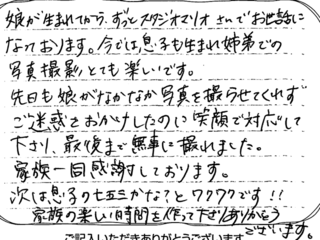 娘が生まれてから、ずっとスタジオマリオさんでお世話に
なっております。今では息子も生まれ姉弟での
写真撮影とても楽しいです。
先日も娘がなかなか写真を撮らせてくれず
ご迷惑をおかけしたのに笑顔で対応して
下さり、最後まで無事に撮れました。
家族一同感謝しております。
次は息子の七五三かな?とワクワクです!!
家族の楽しい時間を作って下さりありがとう
ございます。
ご記入いただきありがとうございます